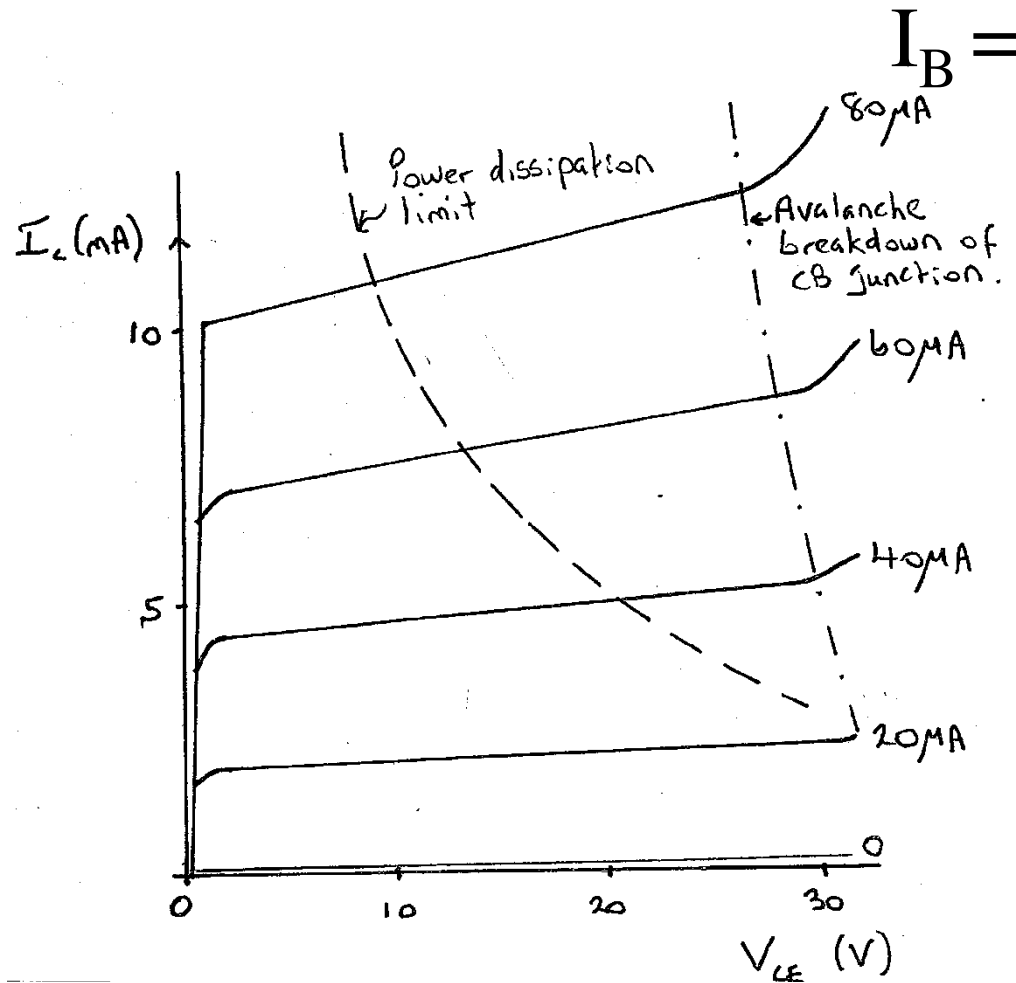 I_B =
80μA
Power dissipation
limit
I_c (mA)
Avalanche
breakdown of
CB junction.
10
60μA
40μA
5
20μA
0
0
10
20
30
V_CE (V)